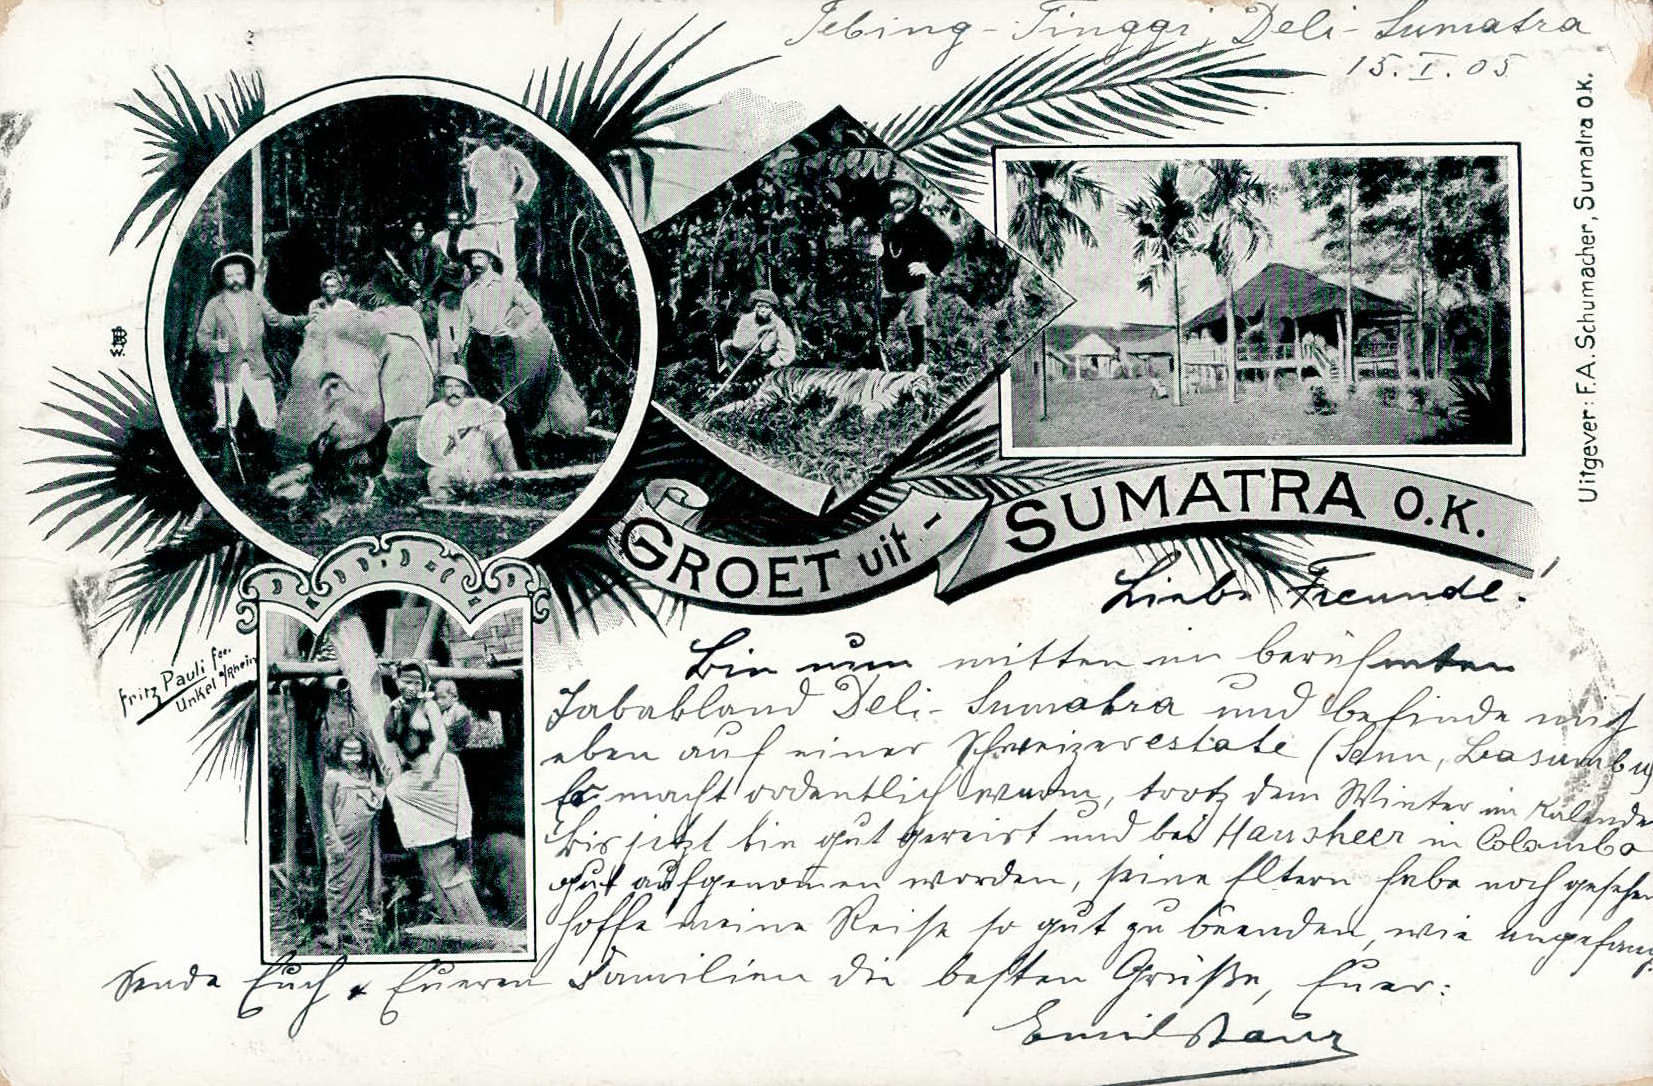 Tebing-Tinggi, Deli-Sumatra
15.I.05
Uitgever: F.A. Schumacher, Sumatra O.K.
GROET uit - SUMATRA O.K.
Fritz Pauli fec.
Unkel a/Rhein
Liebe Freunde!
Bin nun mitten im berühmten
Tabakland Deli-Sumatra und befinde mich
eben auf einer Schweizerestate (Senn,
Es macht ordentlich warm, trotz dem Winter im Kalender
Bis jetzt bin gut gereist und bei Hausheer in Colombo
gut aufgenommen worden, seine Eltern habe noch gesehen
hoffe meine Reise so gut zu beenden, wie angefang.
Sende Euch & Eueren Familien die besten Grüße, Euer:
Emil